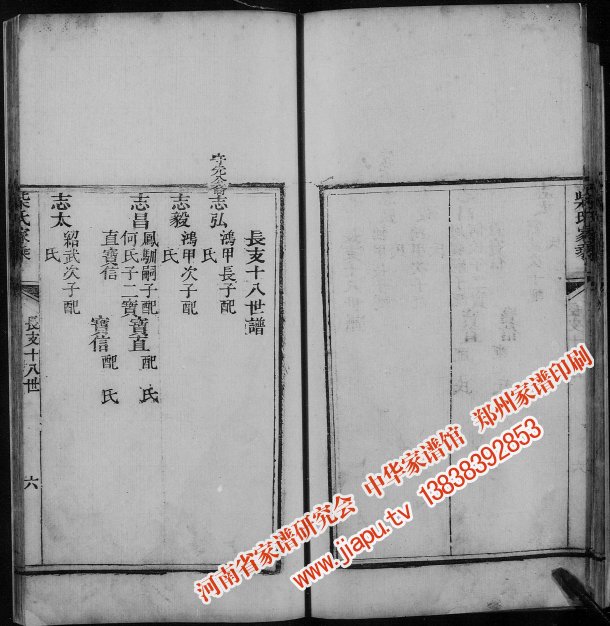 柴氏家乘
長支十八世譜
志弘 鴻甲長子配
氏
志毅 鴻甲次子配
氏
志昌 鳳馴嗣子配 寶直配 氏
何氏子二寶
直寶信 寶信配 氏
志太 紹武次子配
氏
柴氏家乘
長支十八世
六
河南省家谱研究会 中华家谱馆 郑州家谱印刷
www.jiapu.tv 13838392853